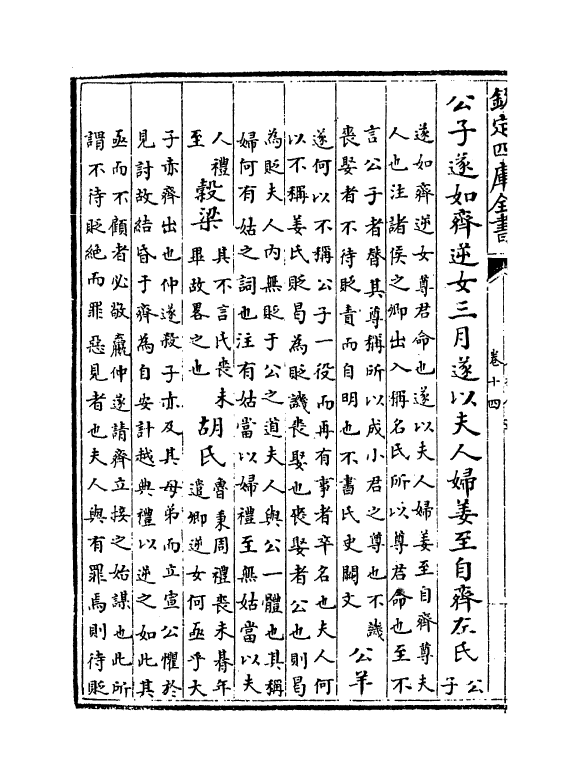 欽定四庫全書
卷十四
公子遂如齊逆女三月遂以夫人婦姜至自齊左氏公
子
遂如齊逆女尊君命也遂以夫人婦姜至自齊尊夫
人也注諸侯之卿出入稱名氏所以尊君命也至不
言公子者替其尊稱所以成小君之尊也不譏
喪娶者不待貶責而自明也不書氏史闕文
公羊
遂何以不稱公子一役而再有事者卒名也夫人何
以不稱姜氏貶曷為貶譏喪娶也喪娶者公也則曷
為貶夫人内無貶于公之道夫人與公一體也其稱
婦何有姑之詞也注有姑當以婦禮至無姑當以夫
人禮
至
穀梁
其不言氏喪未
畢故畧之也
胡氏
魯秉周禮喪未朞年
遣卿逆女何亟乎大
子赤齊出也仲遂殺子赤及其母弟而立宣公懼於
見討故結昏于齊為自安計越典禮以逆之如此其
亟而不顧者必敬嬴仲遂請齊立接之始謀也此所
謂不待貶絕而罪惡見者也夫人與有罪焉則待貶